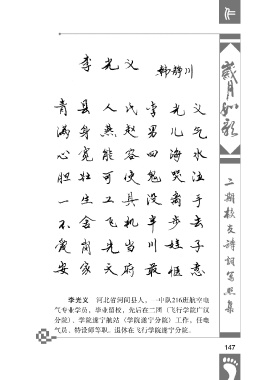 李光义
韩静川
青县人氏李光义
满身燕赵男儿气
心宽能容四海水
胆壮可使鬼哭泣
一生工具没离手
不舍飞机半步去
离岗先当川娃子
安家天府最惬意
李光义 河北省河间县人。一中队216班航空电
气专业学员，毕业留校，先后在二团（飞行学院广汉
分院）、学院遂宁航站（学院遂宁分院）工作，任电
气员、特设师等职。退休在飞行学院遂宁分院。
岁月如歌
二期校友诗词写照集
147